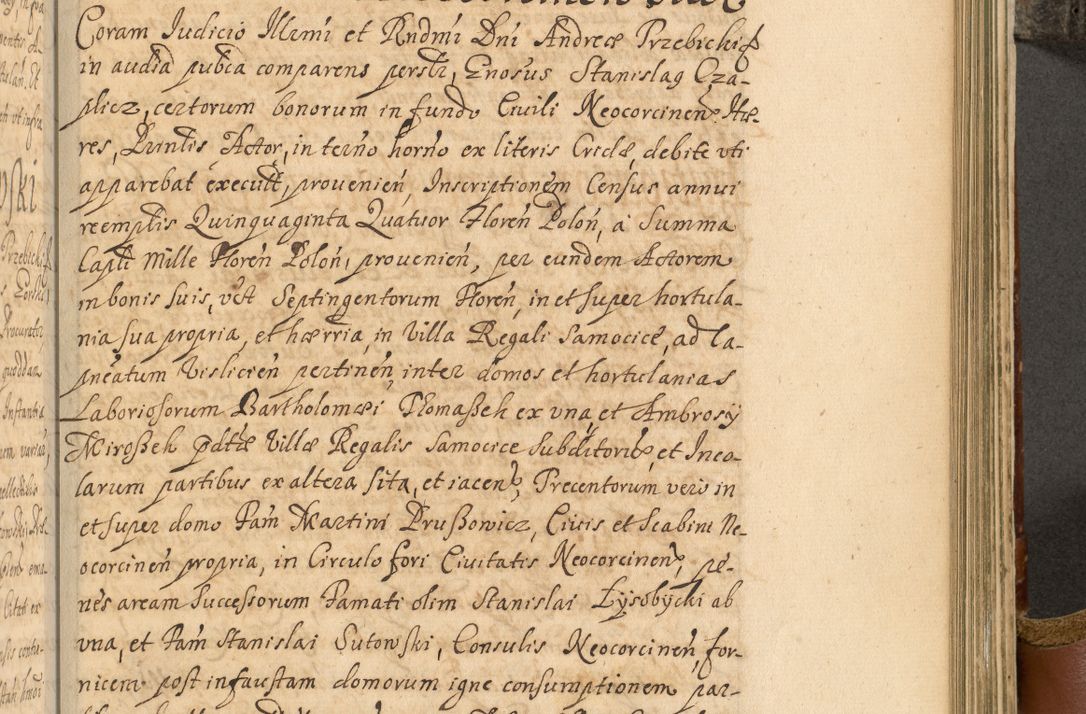 Coram Judicio Illrmi et Rndmi Dni Andreæ Przebickij
in audia pubca comparens persłr, Gnosus Stanislag Cza-
plicz, certorum bonorum in fundo Ciuili Neocorcinen. Hæ-
res, Printis Actor, in terno horno ex literis Credæ, debite vti
apparebat execult, prouenien, Inscriptionem Census annui
reemptis Quinquaginta Quatuor Floren Polon, à Summa
Capti Mille Floren Polon, prouenien, per eundem Actorem
in bonis suis, vct Septingentorum Floren, in et super hortula-
nia sua propria, et hærria, in Villa Regali Samocicē, ad Ca-
pneatum Vislicien pertinen, inter domos et hortulanias
Laboriosorum Bartholomæi Tlomaßek ex vna, et Ambrosÿ
Miroßek pdtæ Villæ Regalis Samocice Subditorū, et Inco-
larum partibus ex altera sita, et iacen, Trecentorum vero in
et super domo Fam Martini Prußowicz, Ciuis et Scabini Ne-
ocorcinen propria, in Circulo fori Ciuitatis Neocorcinen, pe-
nes aream Successorum Famati olim Stanislai Lysobycki ab
vna, et Fam Stanislai Sutowski, Consulis Neocorcinen, for-
nicem post infaustam domorum igne consumptionem par-